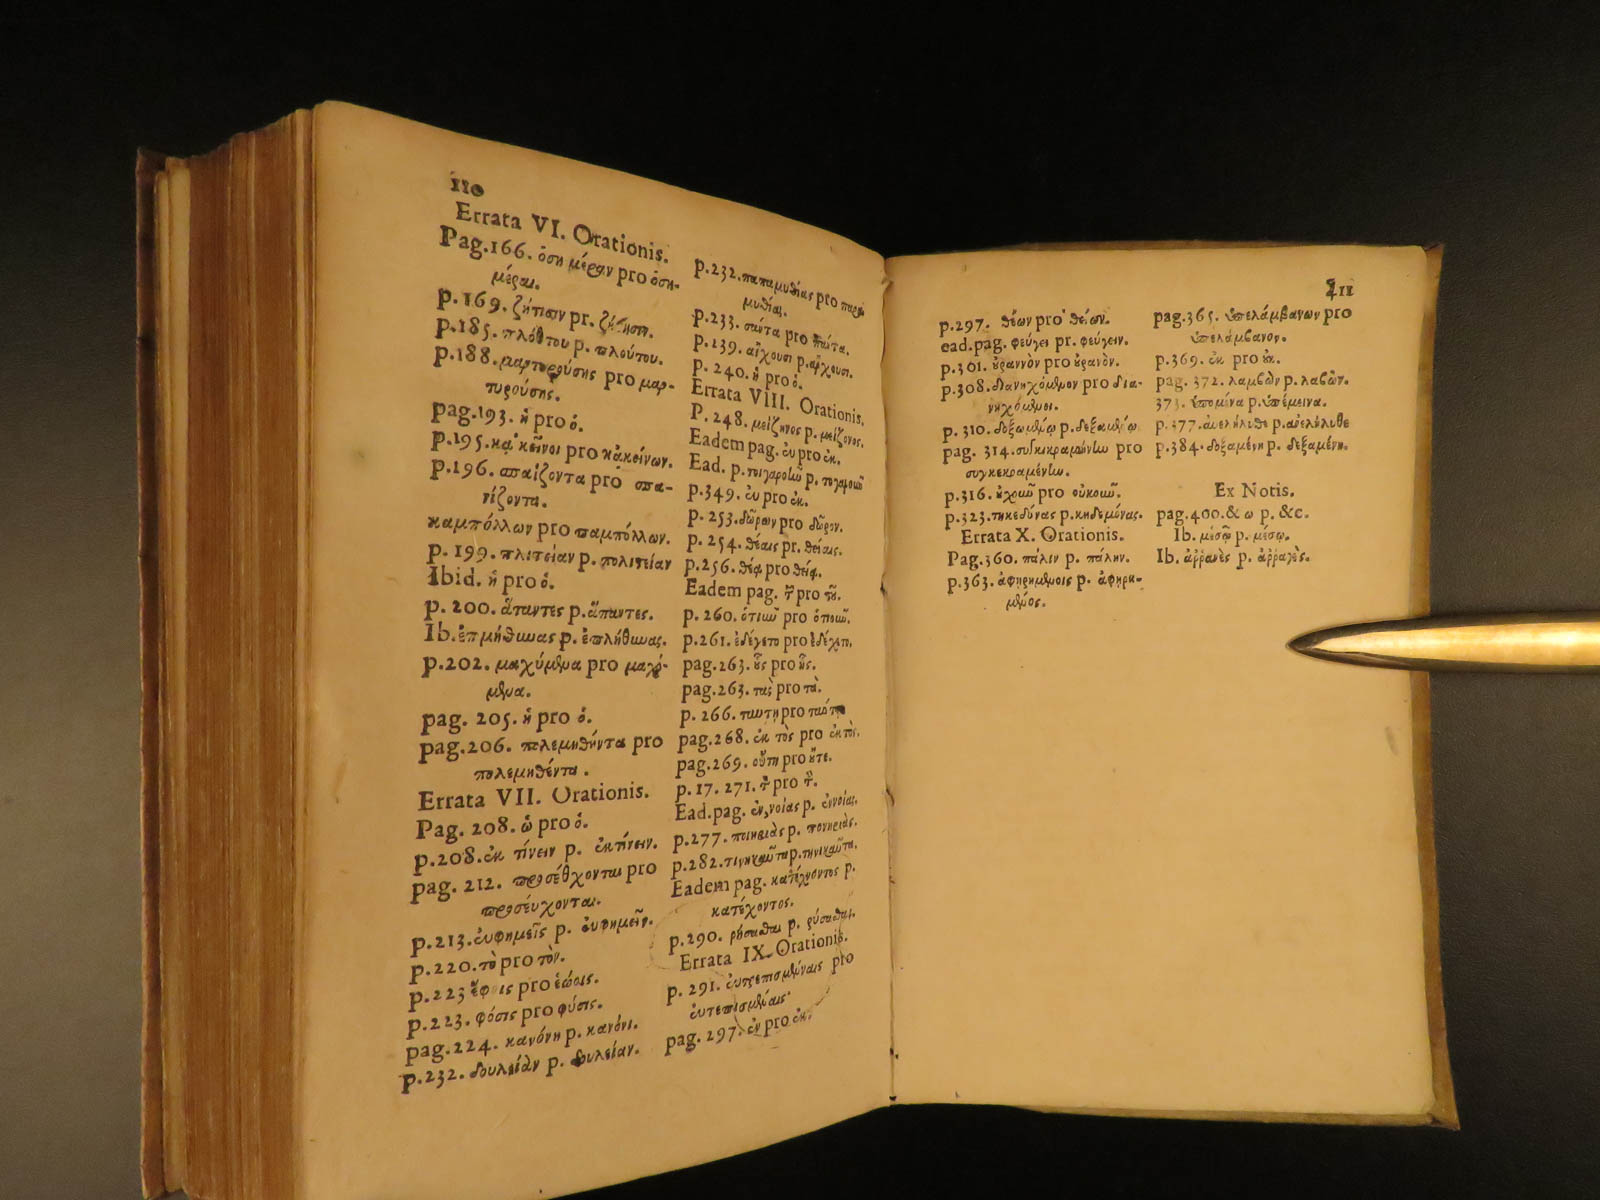 110
Errata VI. Orationis.
Pag.166. ὁση μέραν pro ὁση-
μέραι.
p.169. ζήτισιν pr. ζήτησιν.
p.185. πλόθτου p. πλούτου.
p.188. μαρτορούσης pro μαρ-
τυρούσης.
pag.193. ἡ pro ὁ.
p.195. κα' κεῖνοι pro κἀκείνων.
p.196. σπαίζοντα pro σπα-
νίζοντα.
καμπόλλων pro παμπόλλων.
p. 199. πλιτείαν p. πολιτείαν
Ibid. ἡ pro ὁ.
p. 200. ἅταντες p. ἅπαντες.
Ib.
p.202. μαχύμενα pro μαχό-
μενα.
pag. 205. ἡ pro ὁ.
pag.206. πολεμηθήντα pro
πολεμηθέντα.
Errata VII. Orationis.
Pag. 208. ὡ pro ὁ.
p.208. ἐκ τίνειν p. ἐκτίνειν.
pag. 212. προσέθχονται pro
προσεύχονται.
p.213. εὐφημεῖς p. εὐφημεῖν.
p.220. τὸ pro τὸν.
p.223 pro ἑώοις.
p.223. φόσις pro φύσις.
pag.224. κανόνη p. κανόνι.
p.232. δουλείὰν p. δουλείαν.
p.232. παπαμυθίας pro παρα
μυθίας.
p.233. σάντα pro πάντα.
p.139. αἴχουσι p. ἄρχουσι.
p. 240. ἡ pro ὁ.
Errata VIII. Orationis.
P. 248. μείζηνος p. μείζονος.
Eadem pag. ἐυ pro ἐκ.
Ead. p. τοιγαροῦν p.
p.349. ἐυ pro ἐκ.
p. 253. δώρων pro δῶρον.
p. 254. θέαις pr. θείαις.
p.256. θέᾳ pro θείᾳ.
Eadem pag. pro τοῦ.
p. 260. ὁτιοῦν pro ὁποῦν.
p.261. ἐδέγετο pro ἐδέχετο.
pag.263. pro
pag.263. τας pro τὰ.
p. 266. ταυτη pro
pag.268. ἐκ τὸς pro ἐκτὸς.
pag.269. οὔτη pro οὔτε.
p. 17. 271. pro
Ead.pag. ἐν,νοίας p. ἐννοίας.
p.277. p. πονηρίας.
p.282. τινηκαῦτα p. τηνικαῦτα.
Eadem pag. κατέχνοντος p.
κατέχοντος.
p.290. ῥήσασθαι p. ῥύσασθαι.
Errata IX. Orationis.
p. 291. pro
pag. 297. ἐν pro ἐκ.
211
p.297. θέων pro θείων.
ead.pag. φεύγει pr. φεύγειν.
p.301. οὐραννὸν pro οὐρανὸν.
p.308. διανηχόμενον pro δια-
νηχόμενοι.
p. 310. δοξαμένῳ p. δεξαμένῳ
pag. 314. συγκικραμένην pro
συγκεκραμένην.
p.316. pro οὐκοῦν.
p.323. τηκεδόνας p. κηδεμόνας.
Errata X. Orationis.
Pag.360. πάλιν p. πάλην.
p.363. ἀφηρημένοις p. ἀφῃρη-
μένος.
pag.365. ὑπελάμβανων pro
ὑπελάμβανον.
p.369. ἐκ pro
pag. 372. λαμβὼν p. λαβὼν.
373. ὑπομίνα p. ὑπέμεινα.
p.377. p.
p.384. δοξαμένη p. δεξαμένη.
Ex Notis.
pag.400. & ω p. &c.
Ib. μέσῷ p. μέσῳ.
Ib. ἀῤῥανὲς p. ἀῤῥαγὲς.